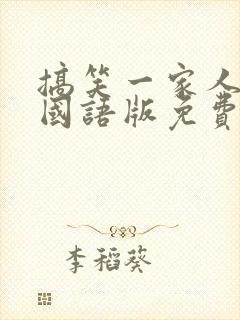 搞笑一家人
國語版免費
李稻葵